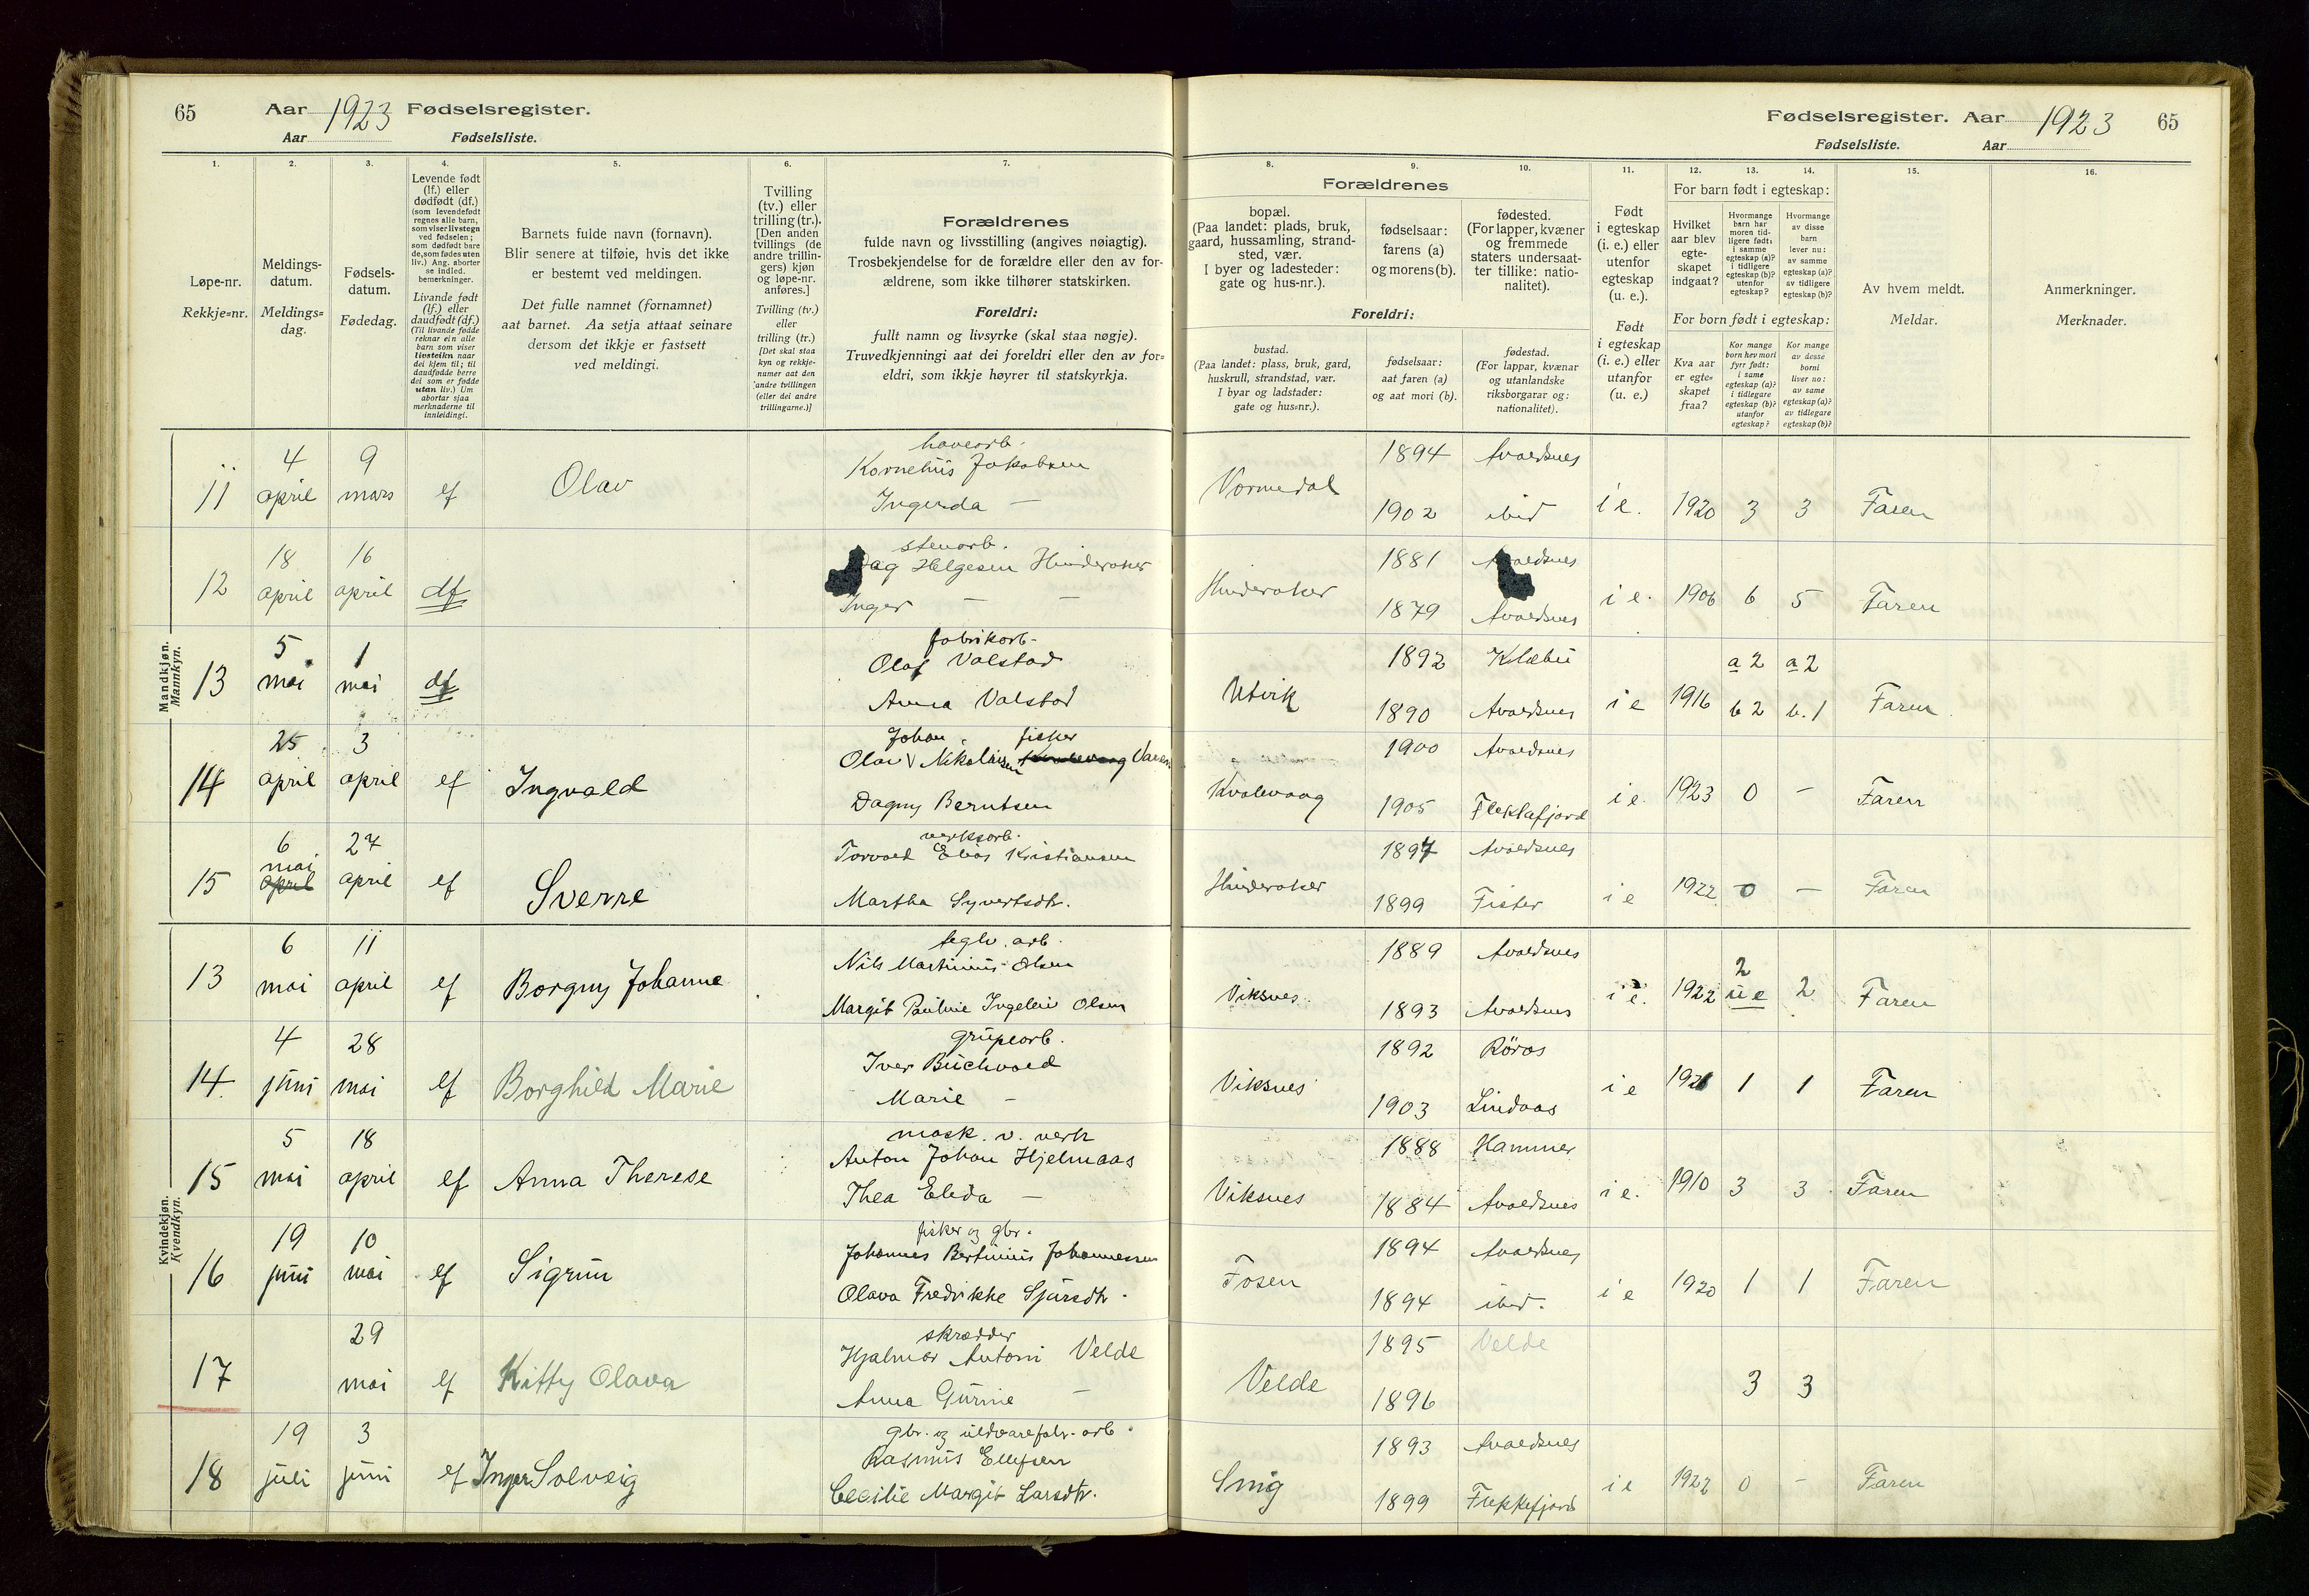 65 Aar 1923 Fødselsregister.
Aar Fødselsliste.
Fødselsregister. Aar 1923 65
Fødselsliste. Aar
1. 2. 3. 4. 5. 6. 7. 8. 9. 10. 11. 12. 13. 14. 15. 16.
Løpe-nr.
Rekkje=nr.
Meldings-
datum.
Meldings=
dag.
Fødsels-
datum.
Fødedag.
Levende født
(lf.) eller
dødfødt (df.)
(som levendefødt
regnes alle barn,
som viser livstegn
ved fødselen;
som dødfødt bare
de, som fødes uten
liv.) Ang. aborter
se indled.
bemerkninger.
Livande født
(lf.) eller
daudfødt (df.)
(Til livande fødde
reknar ein alle
barn som viser
livsteikn naar
dei kjem til; til
daudfødde berre
dei som er fødde
utan liv.) Um
abortar sjaa
merknaderne til
innleidingi.
Barnets fulde navn (fornavn).
Blir senere at tilføie, hvis det ikke
er bestemt ved meldingen.
Det fulle namnet (fornamnet)
aat barnet. Aa setja attaat seinare
dersom det ikkje er fastsett
ved meldingi.
Tvilling
(tv.) eller
trilling (tr.).
[Den anden
tvillings (de
andre trillin-
gers) kjøn
og løpe-nr.
anføres.]
Tvilling (tv.)
eller
trilling (tr.)
[Det skal staa
kyn og rekkje-
numer aat den
andre tvillingen
(eller dei andre
trillingarne.)]
Forældrenes
fulde navn og livsstilling (angives nøiagtig).
Trosbekjendelse for de forældre eller den av for-
ældrene, som ikke tilhører statskirken.
Foreldri:
fullt namn og livsyrke (skal staa nøgje).
Truvedkjenningi aat dei foreldri eller den av for=
eldri, som ikkje høyrer til statskyrkja.
Forældrenes
bopæl.
(Paa landet: plads, bruk,
gaard, hussamling, strand-
sted, vær.
I byer og ladesteder:
gate og hus-nr.).
fødselsaar:
farens (a)
og morens (b).
fødested.
(For lapper, kvæner
og fremmede
staters undersaat-
ter tillike: natio-
nalitet).
Foreldri:
bustad.
(Paa landet: plass, bruk, gard,
huskrull, strandstad, vær.
I byar og ladstader:
gate og hus=nr.).
fødselsaar:
aat faren (a)
og aat mori (b).
fødestad.
(For lappar, kvænar
og utanlandske
riksborgarar og:
nationalitet).
Født
i egteskap
(i. e.) eller
utenfor
egteskap
(u. e.).
Født
i egteskap
(i. e.) eller
utanfor
(u. e.)
For barn født i egteskap:
Hvilket
aar blev
egte-
skapet
indgaat?
Hvormange
barn har
moren tid-
ligere født:
i samme
egteskap (a)?
i tidligere
egteskap (b)?
utenfor
egteskap?
Hvormange
av disse
barn
lever nu:
av samme
egteskap (a)?
av tidligere
egteskap (b)?
For born født i egteskap:
Kva aar
er egte=
skapet
fraa?
Kor mange
born hev mori
fyrr født:
i same
egteskap (a)?
i tidlegare
egteskap (b)?
utanfor
egteskap?
Kor mange
av desse
borni
liver no:
av same
egteskap (a)?
av tidlegare
egteskap (b)?
Av hvem meldt.
Meldar.
Anmerkninger.
Merknader.
Mandkjøn.
Mannkyn.
havearb.
4 9 Kornelius Jakobsen 1894 Avaldsnes
11 april mars lf Olav Ingerda — Vormedal 1902 ibid i e. 1920 3 3 Faren
stenarb.
18 16 Dag Helgesen Hinderaker 1881 Avaldsnes
12 april april df Inger — — Hinderaker 1879 Avaldsnes i e. 1906 6 5 Faren
fabrikarb.
5 1 Olaf Valstad 1892 Klæbu a 2 a 2
13 mai mai df Anna Valstad Utvik 1890 Avaldsnes i e 1916 b 2 b. 1 Faren
Johan fisker
25 3 Olav Nikolaisen 1900 Avaldsnes
14 april april lf Ingvald Dagny Berntsen Kvalevaag 1905 i e. 1923 0 — Faren
verksarb.
6 27 Torvald Elias Kristiansen 1897 Avaldsnes
mai
15 april april lf Sverre Martha Syvertsdtr. Hinderaker 1899 Fister i e 1922 0 — Faren
Kvindekjøn.
Kvendkyn.
teglv. arb.
6 11 Nils Martinius Olsen 1889 Avaldsnes 2
13 mai april lf Borgny Johanne Margit Pauline Ingeleiv Olsen Viksnes. 1893 Avaldsnes i e. 1922 u e 2 Faren
grubearb.
4 28 Iver Buchvold 1892 Röros
14. juni mai lf Borghild Marie Marie — Viksnes 1903 Lindaas i e 1921 1 1 Faren
mask. v. verk
5 18 Anton Johan Hjelmaas 1888 Hammer
15 mai april lf Anna Therese Thea Elida — Viksnes 1884 Avaldsnes i e. 1910 3 3 Faren
fisker og gbr.
19 10 Johannes Bertinius Johannessen 1894 Avaldsnes
16 juni mai lf Sigrun Olava Fredrikke Sjursdtr. Fosen 1894 ibid. i e 1920 1 1 Faren
skrædder
29 Hjalmar Antoni Velde 1895 Velde
17 mai lf Kitty Olava Anna Gurine — Velde 1896 3 3
gbr. og uldvarefabr. arb.
19 3 Rasmus Ellefsen 1893 Avaldsnes
18 juli juni lf Inger Solveig Cecilie Margit Larsdtr. Snig 1899 Flekkefjord i e 1922 0 — Faren